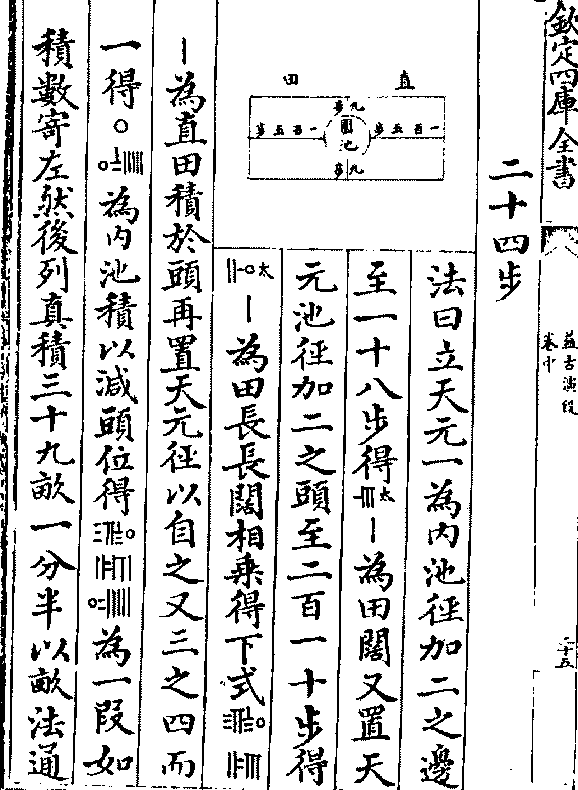 欽定四庫全書
益古演段
卷中
二十五
二十四步
直田
九步
一百五步
圓池
一百五步
九步
法曰立天元一為内池徑加二之邊
至一十八步得太丨為田闊又置天
元池徑加二之頭至二百一十步得
太丨為田長長闊相乗得下式
丨為直田積於頭再置天元徑以自之又三之四而
一得〇為内池積以減頭位得為一段如
積數寄左然後列真積三十九畝一分半以畝法通